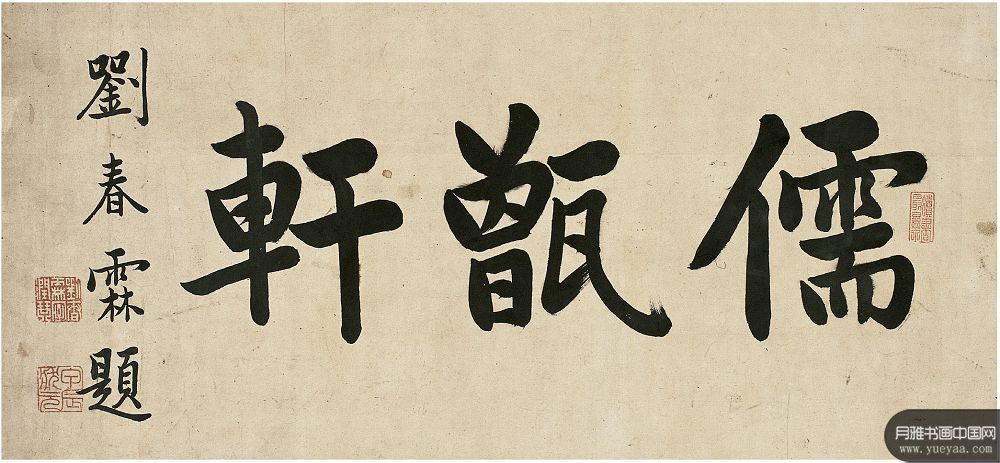 儒甑軒
劉春霖題
月雅书画中国网
www.yueyaa.com